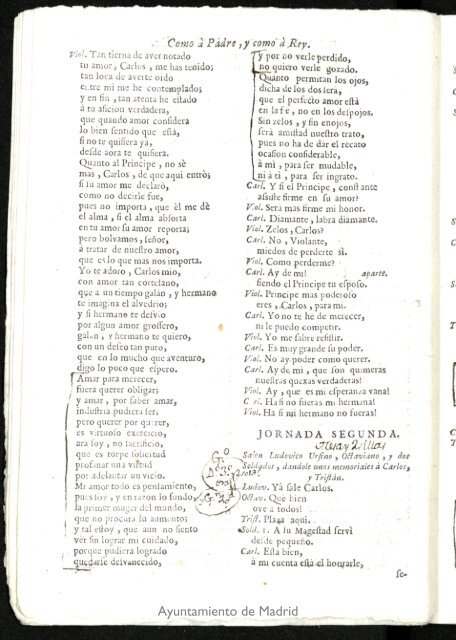 Como à Padre, y como à Rey.
Viol. Tan tierna de aver notado
tu amor, Carlos, me has tenido;
tan loca de averte oido
entre mi me he contemplado;
y en fin, tan atenta he estado
à tu aficion verdadera,
que quando amor considera
lo bien sentido que està,
si no te quisiera ya,
desde aora te quisiera.
Quanto al Principe, no sè
mas, Carlos, de que aqui entrò;
si su amor me declarò,
como no decirle fue,
pues no importa, que èl me dè
el alma, si el alma absorta
en tu amor su amor reporta;
pero bolvamos, señor,
à tratar de nuestro amor,
que es lo que mas nos importa.
Yo te adoro, Carlos mio,
con amor tan cortesano,
que à un tiempo galàn, y hermano
te imagina el alvedrio;
y si hermano te desvio
por algun amor grossero,
galàn, y hermano te quiero,
con un deseo tan puro,
que en lo mucho que aventuro,
digo lo poco que espero.
Amar para merecer,
fuera querer obligar;
y amar, por saber amar,
industria pudiera ser,
pero querer por querer,
es virtuoso exercicio,
ara soy, no sacrificio,
que es torpe solicitud
profanar una virtud
por adelantar un vicio.
Mi amor todo es pensamiento,
pues soy, y en razon lo fundo,
la primer muger del mundo,
que no procura su aumento;
y tal estoy, que aun no siento
vèr sin lograr mi cuidado,
porque pudiera logrado
quedarse desvanecido,
y por no verle perdido,
no quiero verle gozado.
Quanto permitan los ojos,
dicha de los dos serà,
que el perfecto amor està
en la fe, no en los despojos.
Sin zelos, y sin enojos,
serà amistad nuestro trato,
pues no ha de dàr el recato
ocasion considerable,
à mi, para ser mudable,
ni à ti, para ser ingrato.
Carl. Y si el Principe, constante
assiste firme en su amor?
Viol. Serà mas firme mi honor.
Carl. Diamante, labra diamante.
Viol. Zelos, Carlos?
Carl. No, Violante,
miedos de perderte sì.
Viol. Como perderme?
Carl. Ay de mi! aparte.
siendo el Principe tu esposo.
Viol. Principe mas poderoso
eres, Carlos, para mi.
Carl. Yo no te he de merecer,
ni le puedo competir.
Viol. Yo me sabre resistir.
Carl. Es muy grande su poder.
Viol. No ay poder como querer.
Carl. Ay de mi, que son quimeras
nuestras quexas verdaderas!
Viol. Ay, que es mi esperanza vana!
Carl. Ha si no fueras mi hermana!
Viol. Ha si mi hermano no fueras!
JORNADA SEGUNDA.
Salen Ludovico Ursino, Octaviano, y dos
Soldados, dandole unos memoriales à Carlos,
y Tristàn.
Ludov. Yà sale Carlos.
Octav. Què bien
oye à todos!
Trist. Plaza aqui.
Sold. 1. A su Magestad servì
desde pequeño.
Carl. Està bien,
à mi cuenta està el honrarle,
se-
Ayuntamiento de Madrid